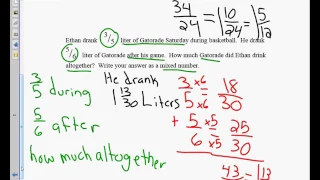 34/24 = 1 10/24 = 1 5/12
Ethan drank 3/5 liter of Gatorade Saturday during basketball. He drank
5/6 liter of Gatorade after his game. How much Gatorade did Ethan drink
altogether? Write your answer as a mixed number.
3/5 during
5/6 after
how much altogether
He drank
1 13/30 Liters
3/5 ×6/×6 18/30
+ 5/6 ×5/×5 25/30
43 = 1 13